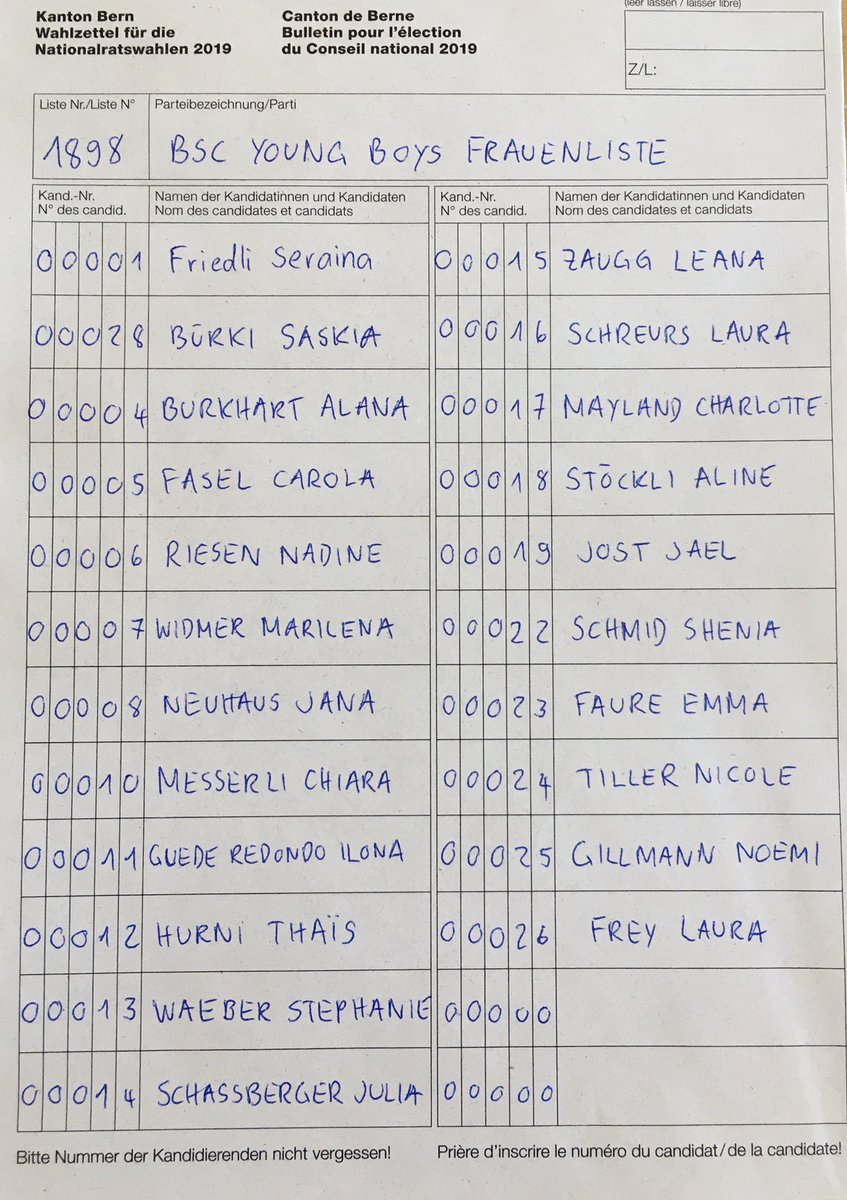 (leer lassen / laisser libre)
Kanton Bern
Wahlzettel für die
Nationalratswahlen 2019
Canton de Berne
Bulletin pour l'élection
du Conseil national 2019
Z/L:
Liste Nr./Liste N° Parteibezeichnung/Parti
1898 BSC YOUNG BOYS FRAUENLISTE
Kand.-Nr. Namen der Kandidatinnen und Kandidaten
N° des candid. Nom des candidates et candidats
00001 Friedli Seraina
00028 BÜRKI SASKIA
00004 BURKHART ALANA
00005 FASEL CAROLA
00006 RIESEN NADINE
00007 WIDMER MARILENA
00008 NEUHAUS JANA
00010 MESSERLI CHIARA
00011 GUEDE REDONDO ILONA
00012 HURNI THAÏS
00013 WAEBER STEPHANIE
00014 SCHASSBERGER JULIA
Kand.-Nr. Namen der Kandidatinnen und Kandidaten
N° des candid. Nom des candidates et candidats
00015 ZAUGG LEANA
00016 SCHREURS LAURA
00017 MAYLAND CHARLOTTE
00018 STÖCKLI ALINE
00019 JOST JAEL
00022 SCHMID SHENIA
00023 FAURE EMMA
00024 TILLER NICOLE
00025 GILLMANN NOEMI
00026 FREY LAURA
00000
00000
Bitte Nummer der Kandidierenden nicht vergessen!
Prière d'inscrire le numéro du candidat/de la candidate!